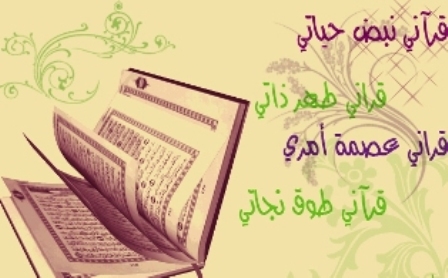 قرآني نبض حياتي
قراني طهر ذاتي
قراني عصمة أمري
قرآني طوق نجاتي